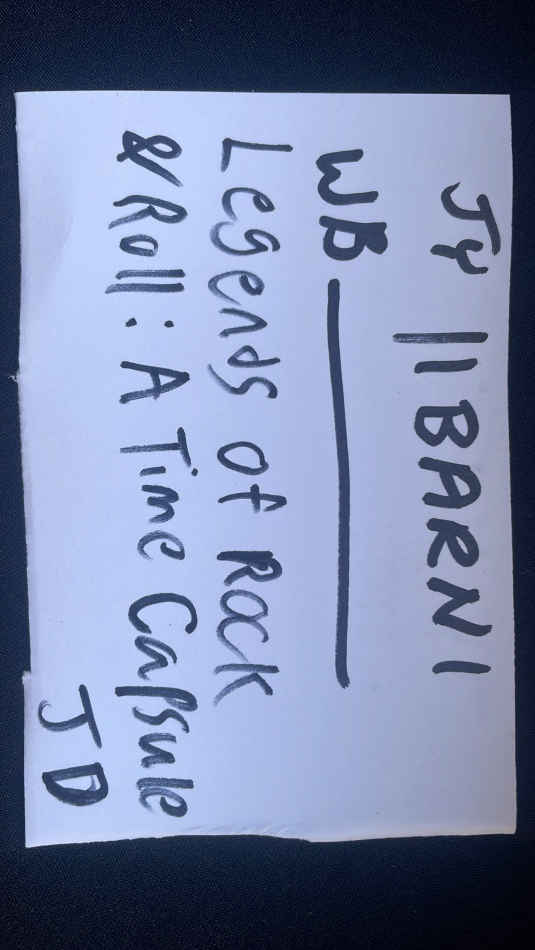 Jy || BARNI
WB
Legends of Rock
& Roll: A Time Capsule
JD